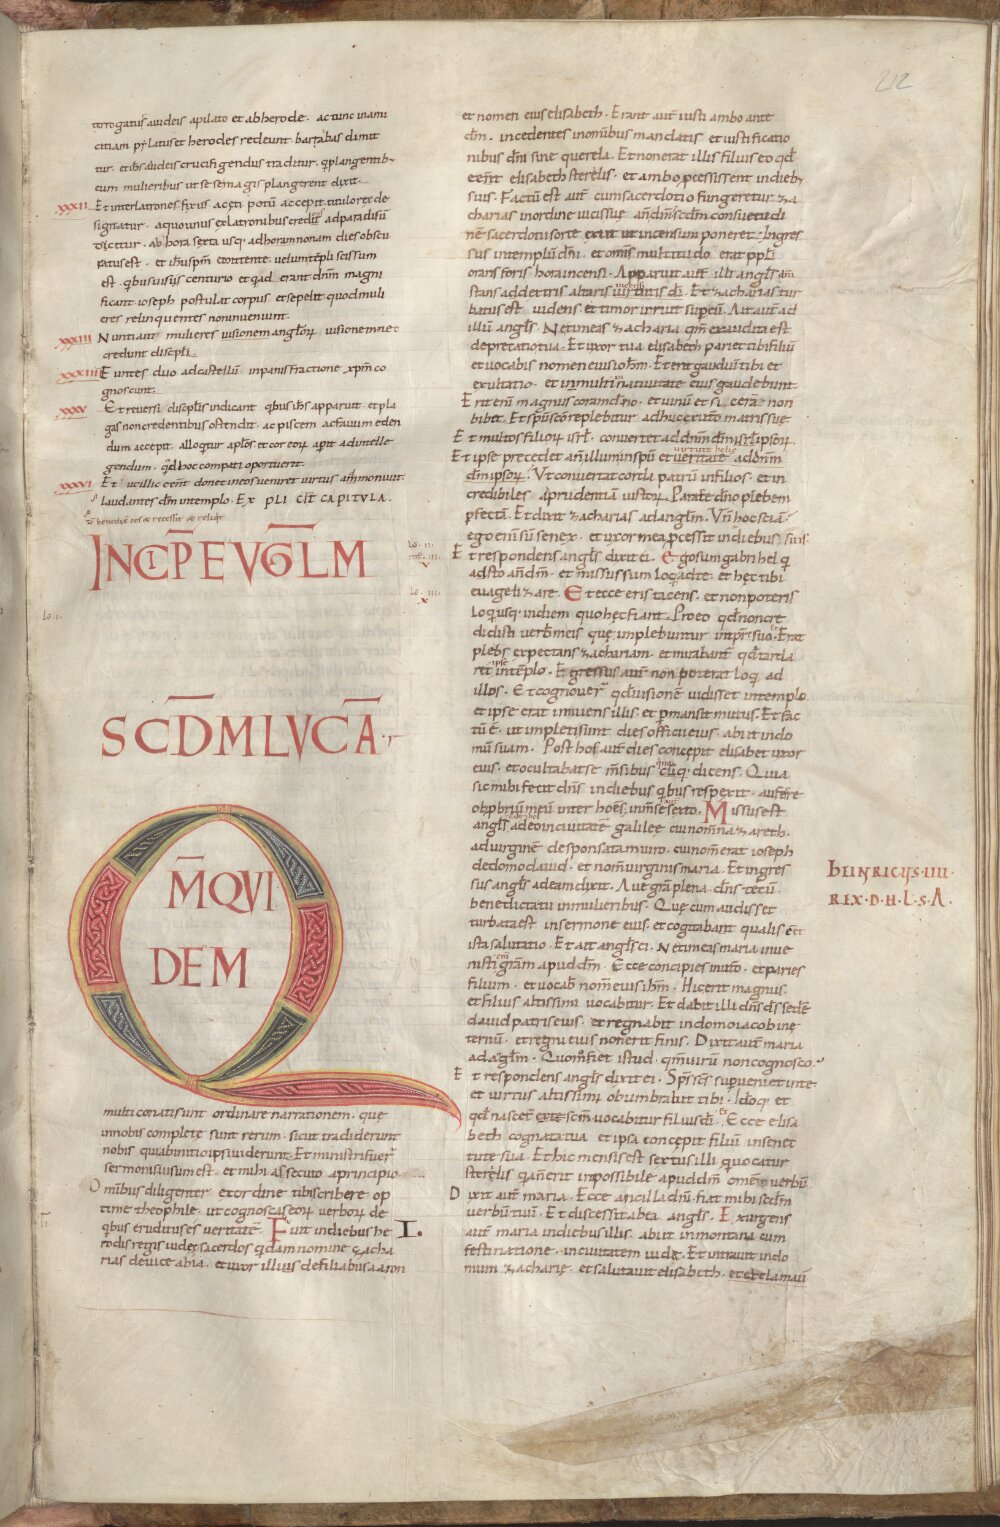 212
terrogatus iudeis a pilato et ab herode · ac tunc inimi
citiam pylatus et herodes redeunt · barrabas dimit
tur · et ihs iudeis crucifigendus traditur · qđ plangentib;
cum mulieribus ut se semagis plangerent dixit ·
XXXII Et inter latrones fixus aceti potū accepit titulo rex de
signatur · a quo unus ex latronibus credit ad paradisū
dicitur · ab hora sexta usq; ad horam nonam dies obscu
ratus est · et ihs spm̄ emittente · velum tēpli scissum
est · qbus visis centurio et qđ erant dnm̄ magni
ficant · ioseph postulat corpus et sepelit quod muli
eres relinquentes non inveniunt ·
XXXIII Nuntiant mulieres visionem anglorum visione mnec
credunt discipli ·
XXXIIII Euntes duo ad castellū in panis fractione xpm̄ co
gnoscunt ·
XXXV Et reversi discipl̄is indicant qbus ihs apparuit · et pla
gas non credentibus ostendit · ac piscem ac favum eden
dum accepit · alloqtur aplōs et cor eorum apit ad intelle
gendum · qđ hoc compati oportuerit ·
XXXVI Et ut illic eēnt donec in eos veniret virtus āmonuit
laudantes dm̄ in templo · EXPLICIT CAPITVLA ·
INCIP̄ EVGLM
Lo · I ·
SCDM LVCĀ
Q
M̄QVI
DEM
multi conati sunt ordinare narrationem · quę
in nobis complete sunt rerum · sicut tradiderunt
nobis qui ab initio ipsi viderunt · Et ministri fuer̄
sermonis visum est · et mihi assecuto a principio
Omībus diligenter ex ordine tibi scribere op
time theophile · ut cognoscas eorum verborum de
qbus eruditus es veritatē · Fuit in diebus he I.
rodis regis iudeę sacerdos qdam nomine zacha
rias de vice abia · et uxor illius de filiabus aaron
et nomen eius elisabeth · Erant aut̄ iusti ambo ante
dm̄ · incedentes in omībus mandatis et iustificatio
nibus dn̄i sine querela · Et non erat illis filius eo qđ
eēnt elisabeth sterelis · et ambo pcessissent in dieb;
suis · Factū est aut̄ cum sacerdotio fungeretur za
charias in ordine vicis suę · an̄ dm̄ scdm̄ consuetudi
nē sacerdotii sorte exiit ut incensum poneret · Ingres
sus in templū dn̄i · et om̄is multitudo erat ppl̄i
orans foris hora incensi · Apparuit aut̄ illi angls dn̄i
stans ad dextris altaris di · Et zacharias tur
batus est videns et timor irruit sup eū · Ait aut̄ ad
illū angls · Ne timeas zacharia qm̄ exaudita est
deprecatio tua · Et uxor tua elisabeth pariet tibi filiū
et vocabis nomen eius iohm̄ · Et erit gaudiū tibi et
exultatio · et multi in nativitate eius gaudebunt ·
Erit enī magnus coram dn̄o · et vinū et sicera non
bibet · Et spū scō replebitur adhuc ex utero matris suę
Et multos filiorum isrl̄ · convertet ad dnm̄ dm̄ ipsorum ·
virtute helię
Et ipse precedet an̄ illum in spū et veritate ad dnm̄
dm̄ ipsorum · Ut convertat corda patrū in filios · et in
credibiles ad prudentiam iustorum · Parare dn̄o plebem
pfectā · Et dixit zacharias ad anglm̄ · Un̄ hoc sciā?
ego enī sū senex · et uxor mea pcessit in diebus suis ·
Et respondens angls dixit ei · Ego sum gabrihel q
adsto an̄ dm̄ · et missus sum loq ad te · et hęc tibi
evangelizare · Et ecce eris tacens · et non poteris
loqui usq; in diem quo hęc fiant · Pro eo qđ non cre
didisti verbis meis quę implebuntur in tempr̄ suo · Erat
plebs expectans zachariam · et mirabant qđ tarda
ret ipse in templo · Egressus aut̄ non poterat loq ad
illos · Et cognover̄ qđ visionē vidisset in templo ·
et ipse erat innuens illis · et pmansit mutus · Et fac
tū ē · ut impleti sunt dies officii eius · abiit in do
mū suam · Post hos aut̄ dies concepit elisabet uxor
eius · et occultabat se m̄sibus quinq; dicens · Quia
sic mihi fecit dn̄s in diebus qbus respexit auferre
obpbriū meū inter hoēs · in m̄se sexto · Missus est
angls a deo in civitatē galileę cui nom̄ nazareth ·
ad virginē desponsatam viro · cui nom̄ erat ioseph
de domo david · et nom̄ virginis maria · Et ingres
sus angls ad eam dixit · Ave gr̄a plena · dn̄s tecū ·
benedicta tu in mulieribus · Quę cum audisset
turbata est in sermone eius · et cogitabat qualis eēt
ista salutatio · Et ait angls ei · Ne timeas maria inve
nisti enī gratiam apud dm̄ · Ecce concipies in utero · et paries
filium · et vocab̄ nom̄ eius ihm̄ · Hic erit magnus ·
et filius altissimi vocabitur · Et dabit illi dn̄s ds sedē
david patris eius · et regnabit in domo iacob in ę
ternū · et regni eius non erit finis · Dixit aut̄ maria
ad aglm̄ · Quom̄ fiet istud · qm̄ virū non cognosco ·
Et respondens angls dixit ei · Spr̄ scs superveniet in te ·
et virtus altissimi obumbrabit tibi · Idoq; et
qđ nascet̄ ex te scm̄ vocabitur filius di · Et ecce elisa
beth cognata tua et ipsa concepit filiū in senec
tute sua · Et hic mensis est sextus illi quo catur
sterelis quia n̄ erit impossibile apud dm̄ omē verbū ·
Dixit aut̄ maria · Ecce ancilla dn̄i · fiat mihi scdm̄
verbū tuū · Et discessit ab ea angls · Exurgens
aut̄ maria in diebus illis · abiit in montana cum
festinatione · in civitatem iudę · Et intravit in do
mum zacharię · et salutavit elisabeth · et exclamavi
HEINRICVS · IIII ·
REX · D · H · L · S · A ·